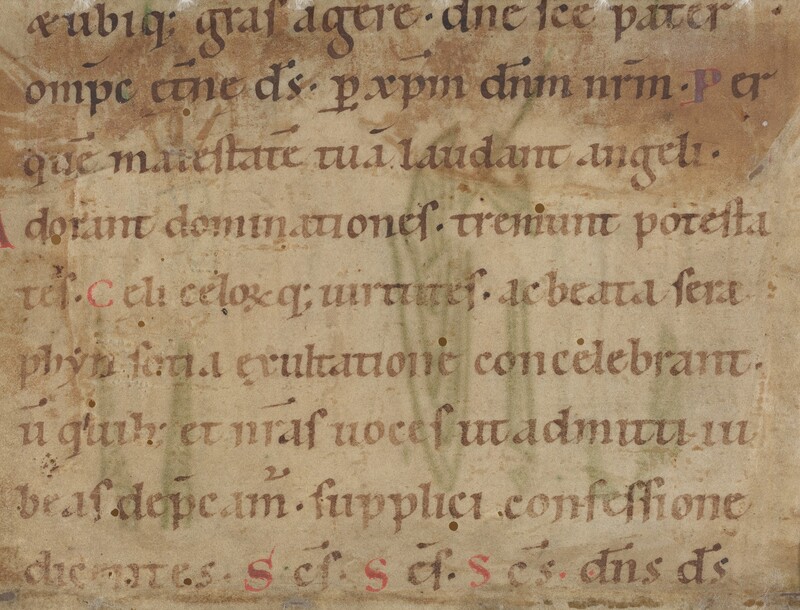 æubiq; gras̄ agere · dn̄e sc̄e pater
omp̄c et̄ne d̄s · ꝑ xp̄m dn̄m nr̄m · Per
quē maiestatē tuā laudant angeli ·
Adorant dominationes · tremunt potesta
tes · Celi celoꝝq; uirtutes · ac beata sera
phyn sotia exultatione concelebrant ·
ū quib; et nr̄as uoces ut admitti iu
beas dep̄cam̄ · supplici confessione
dicentes · Sc̄s · Sc̄s · Sc̄s · dn̄s d̄s